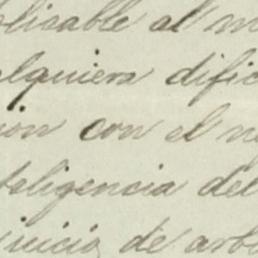 plicable al m
alquiera dific
ion con el n
teligencia del
juicio de arb